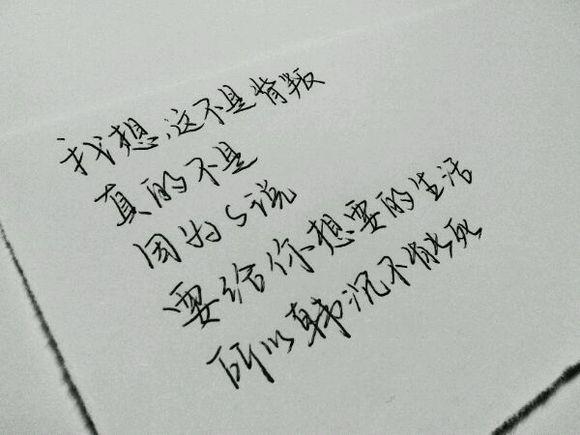 我想,这不是背叛
真的不是
因为S说
要给你想要的生活
所以韩沉不能死